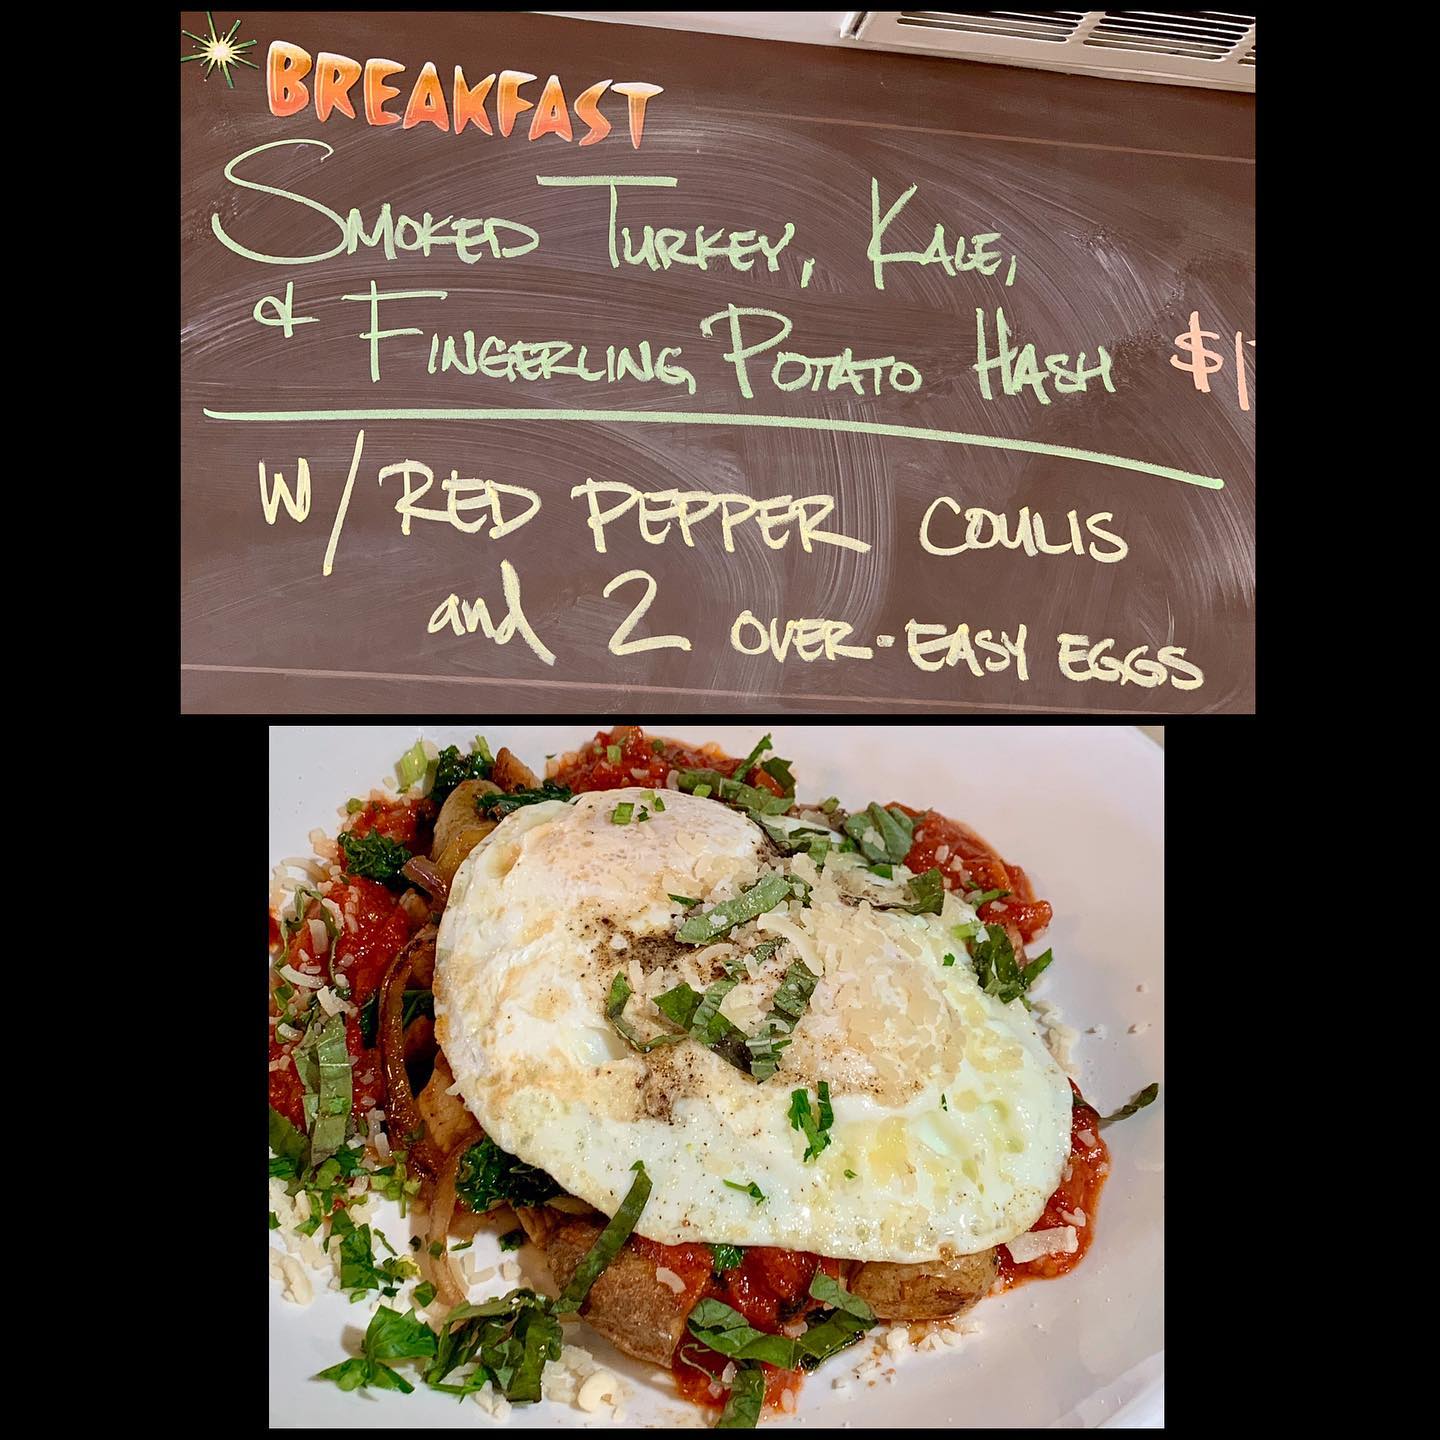 BREAKFAST
SMOKED TURKEY, KALE,
& FINGERLING POTATO HASH
W/ RED PEPPER COULIS
and 2 OVER-EASY EGGS